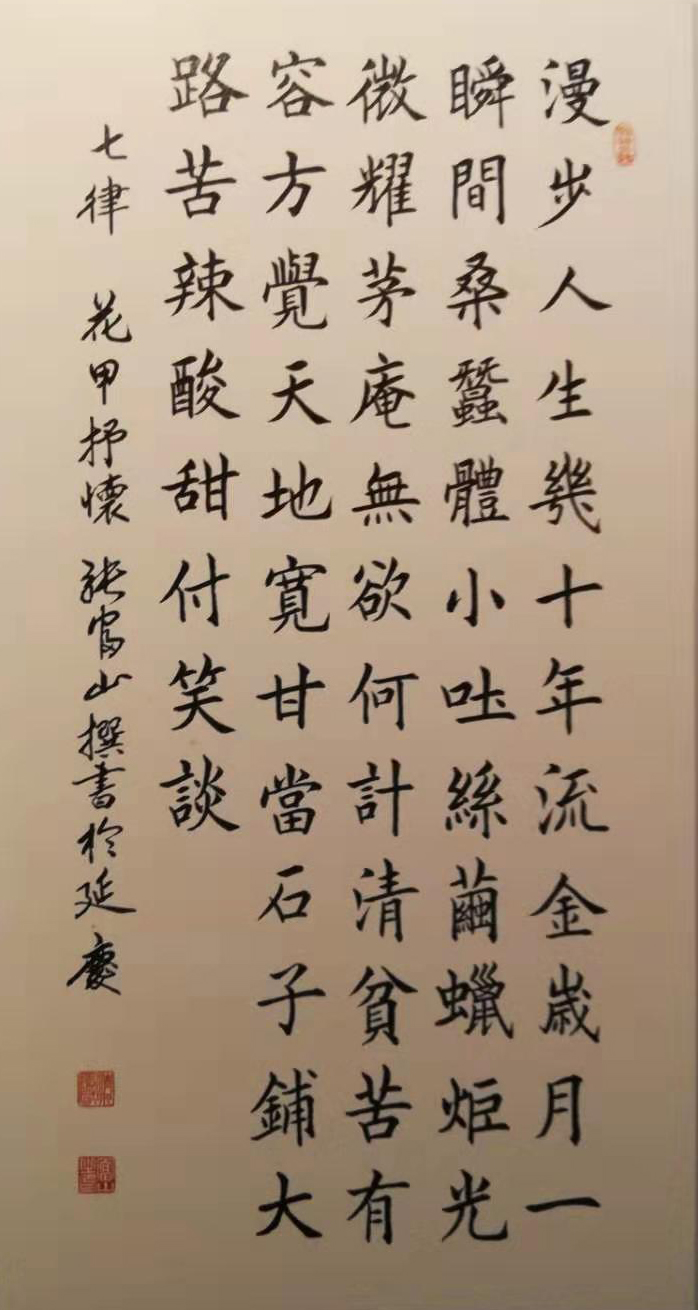 漫步人生幾十年流金歲月一
瞬間桑蠶體小吐絲繭蠟炬光
微耀茅庵無欲何計清貧苦有
容方覺天地寬甘當石子鋪大
路苦辣酸甜付笑談
七律 花甲抒懷 張富山撰書於延慶